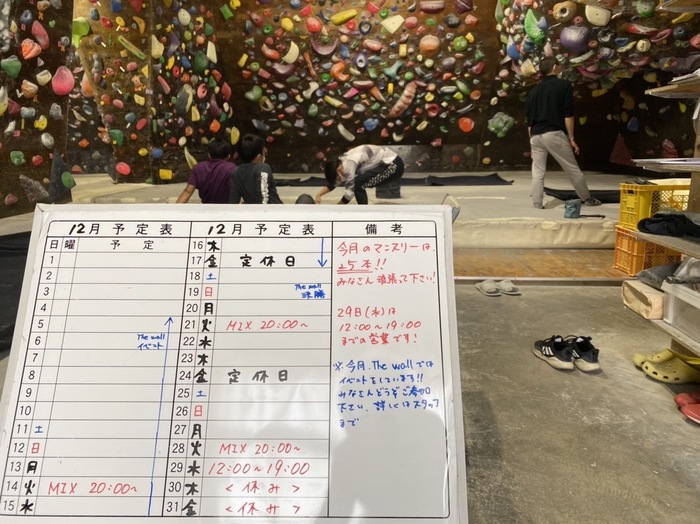 12月 予定表
日 曜 予定
1
2
3
4
5
6
7
8
9
10
11 土
12 日
13 月
14 火 MIX 20:00~
15 水
The wall
イベント
12月 予定表
16 木
17 金 定休日
18 土
19 日
The wall
決勝
20 月
21 火 MIX 20:00~
22 水
23 木
24 金 定休日
25 土
26 日
27 月
28 火 MIX 20:00~
29 水 12:00~19:00
30 木 <休み>
31 金 <休み>
備考
今月のマンスリーは
25本!!
みなさん頑張って下さい!
29日(水)は
12:00~19:00
までの営業です!
※今月、The wallでは
イベントをしています!!
みなさんどうぞご参加
下さい、詳しくはスタッフ
まで